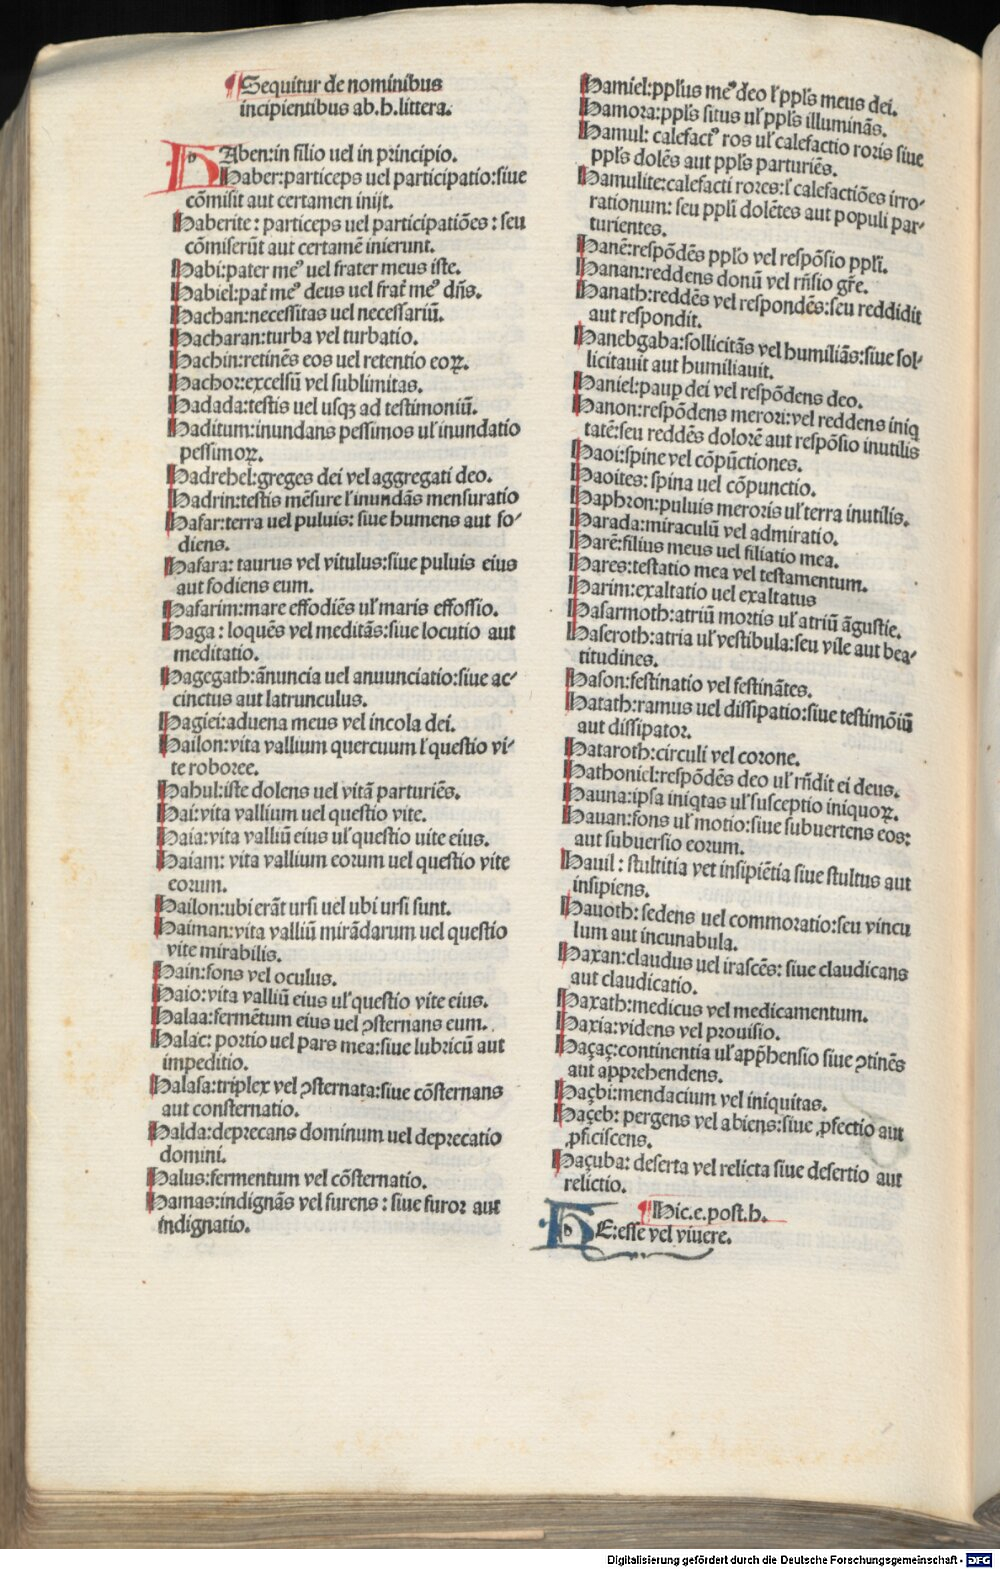 ¶Sequitur de nominibus
incipientibus ab.h.littera.
HAben:in filio uel in principio.
Haber:particeps uel participatio:siue
cõmisit aut certamen inijt.
Haberite: particeps uel participatiões: seu
cõmiserũt aut certamẽ inierunt.
Habi:pater meꝰ uel frater meus iste.
Habiel:pat̃ meꝰ deus uel frat̃ meꝰ dñs.
Hachan:necessitas uel necessariũ.
Hacharan:turba vel turbatio.
Hachin:retinẽs eos uel retentio eoꝝ.
Hachor:excelsũ vel sublimitas.
Hadada:testis uel usqꝫ ad testimoniũ.
Haditum:inundans pessimos ul̓ inundatio
pessimoꝝ.
Hadrehel:greges dei vel aggregati deo.
Hadrin:testis mẽsure l̓ inundãs mensuratio
Hafar:terra uel puluis: siue humens aut fo⸗
diens.
Hafara: taurus vel vitulus:siue puluis eius
aut fodiens eum.
Hafarim:mare effodiẽs ul̓ maris effossio.
Haga: loquẽs vel meditãs:siue locutio aut
meditatio.
Hagegath:ãnuncia uel anuunciatio:siue ac⸗
cinctus aut latrunculus.
Hagiei:aduena meus vel incola dei.
Hailon:vita vallium quercuum l̓ questio vi⸗
te roboree.
Hahul:iste dolens uel vitã parturiẽs.
Hai:vita vallium uel questio vite.
Haia:vita valliũ eius ul̓ questio uite eius.
Haiam: vita vallium eorum uel questio vite
eorum.
Hailon:ubi erãt ursi uel ubi ursi sunt.
Haiman:vita valliũ mirãdarum uel questio
vite mirabilis.
Hain:fons vel oculus.
Haio:vita valliũ eius ul̓ questio vite eius.
Halaa:fermẽtum eius uel ꝯsternans eum.
Halac: portio uel pars mea:siue lubricũ aut
impeditio.
Halasa:triplex vel ꝯsternata:siue cõsternans
aut consternatio.
Halda:deprecans dominum uel deprecatio
domini.
Halus:fermentum vel cõsternatio.
Hamas:indignãs vel furens: siue furor aut
indignatio.
Hamiel:ppl̓us meꝰ deo l̓ ppl̓s meus dei.
Hamora:ppl̓s situs ul̓ ppl̓s illuminãs.
Hamul: calefactꝰ ros ul̓ calefactio roris siue
ppl̓s dolẽs aut ppl̓s parturiẽs.
Hamulite:calefacti rores:l̓ calefactiões irro⸗
rationum: seu ppl̓i dolẽtes aut populi par⸗
turientes.
Hanẽ:respõdẽs ppl̓o vel respõsio ppl̓i.
Hanan:reddens donũ vel rñsio gr̃e.
Hanath:reddẽs vel respondẽs:seu reddidit
aut respondit.
Hanebgaba:sollicitãs vel humiliãs:siue sol⸗
licitauit aut humiliauit.
Haniel:paup dei vel respõdens deo.
Hanon:respõdens merori:vel reddens iniq
tatẽ:seu reddẽs dolorẽ aut respõsio inutilis
Haoi:spine vel cõpũctiones.
Haoites: spina uel cõpunctio.
Haphron:puluis meroris ul̓ terra inutilis.
Harada:miraculũ vel admiratio.
Harẽ:filius meus uel filiatio mea.
Hares:testatio mea vel testamentum.
Harim:exaltatio uel exaltatus
Hasarmoth:atriũ mortis ul̓ atriũ ãgustie.
Haseroth:atria ul̓ vestibula:seu vile aut bea⸗
titudines.
Hason:festinatio vel festinãtes.
Hatath:ramus uel dissipatio:siue testimõiũ
aut dissipator.
Hataroth:circuli vel corone.
Hathoniel:respõdẽs deo ul̓ rñdit ei deus.
Hauna:ipsa iniqtas ul̓ susceptio iniquoꝝ.
Hauan:fons ul̓ motio:siue subuertens eos:
aut subuersio eorum.
Hauil: stultitia vet insipiẽtia siue stultus aut
insipiens.
Hauoth: sedens uel commoratio:seu vincu
lum aut incunabula.
Haxan:claudus uel irascẽs: siue claudicans
aut claudicatio.
Haxath:medicus vel medicamentum.
Haxia:videns vel prouisio.
Haçaç:continentia ul̓ app̃hensio siue ꝯtinẽs
aut apprehendens.
Haçbi:mendacium vel iniquitas.
Haçeb: pergens vel abiens:siue ꝓfectio aut
ꝓficiscens.
Haçuba: deserta vel relicta siue desertio aut
relictio.
¶Hic.e.post.h.
HE:esse vel viuere.
Digitalisierung gefördert durch die Deutsche Forschungsgemeinschaft - DFG